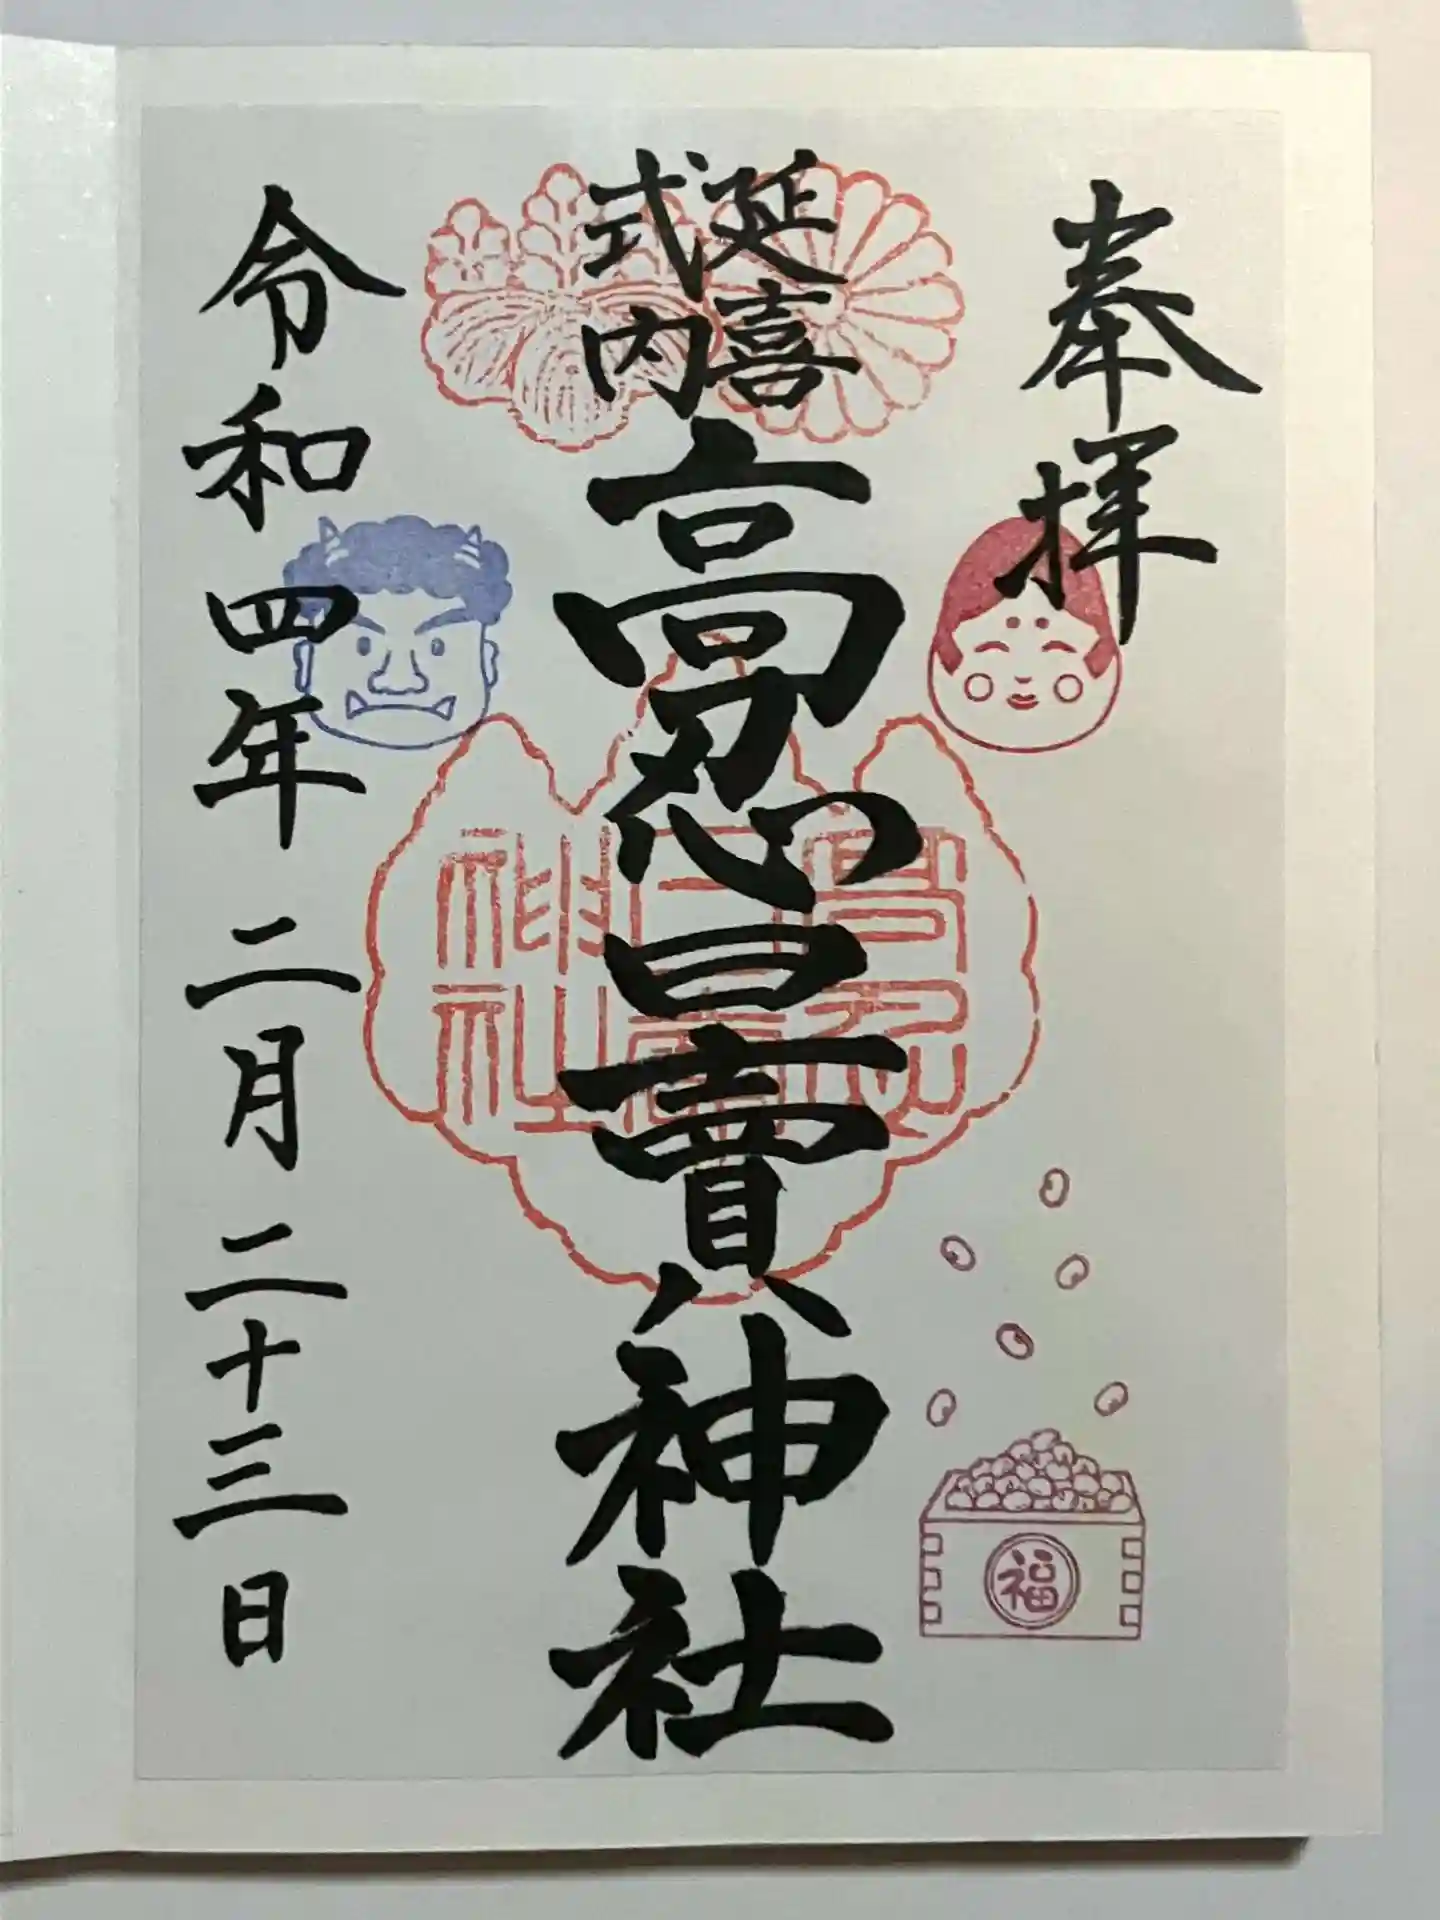 奉拝
延喜
式内
高忍日賣神社
高忍
日賣
神社
福
令和四年二月二十三日